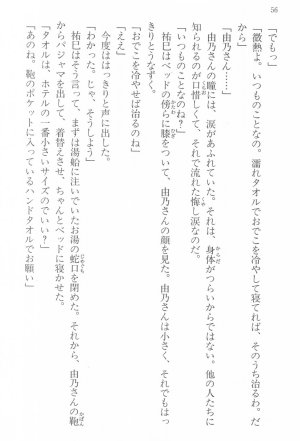 56
「でもっ」
「微熱よ。いつものことなの。濡れタオルでおでこを冷やして寝てれば、そのうち治るわ。だ
から」
「由乃さん……」
由乃さんの瞳には、涙があふれていた。それは、身体がつらいからではない。他の人たちに
知られるのが口惜しくて、それで流れた悔し涙なのだ。
「いつものことなのね?」
祐巳はベッドの傍らに膝をついて、由乃さんの顔を見た。由乃さんは小さく、それでもはっ
きりとうなずく。
「おでこを冷やせば治るのね」
「ええ」
今度ははっきりと声に出した。
「わかった。じゃ、そうしよう」
祐巳はそう言って、まずは湯船に注いでいたお湯の蛇口を閉めた。それから、由乃さんの鞄
からパジャマを出して、着替えさせ、ちゃんとベッドに寝かせた。
「タオルは、ホテルの一番小さいサイズのでいい?」
「あのね。鞄のポケットに入っているハンドタオルでお願い」